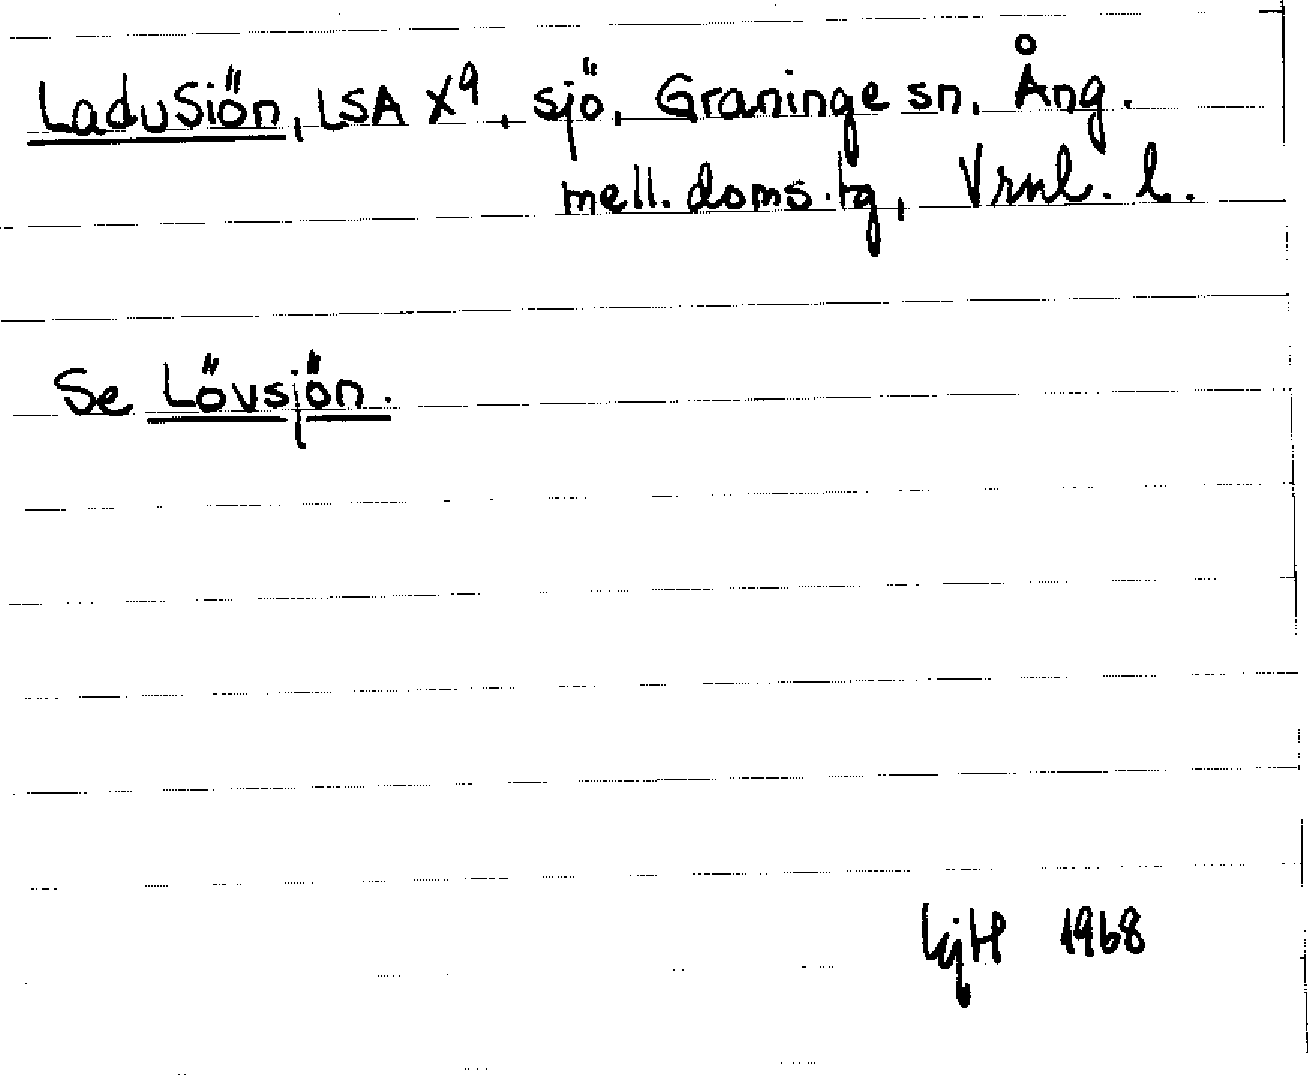 LaduSiön, LSA X9, sjö, Graninge sn, Ång.
mell. doms. tg, Vrnl. l.
Se Lövsjön.
1968